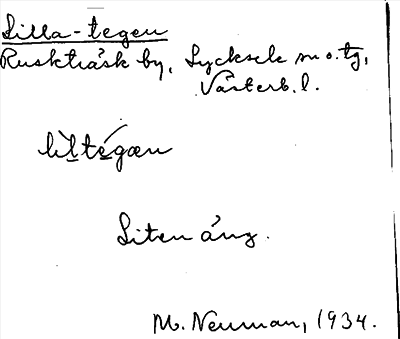 Lilla-tegen
Ruskträsk by, Lycksele sn o. tg,
Västerb. l.
lìltégæn
Liten äng.
M. Neuman, 1934.